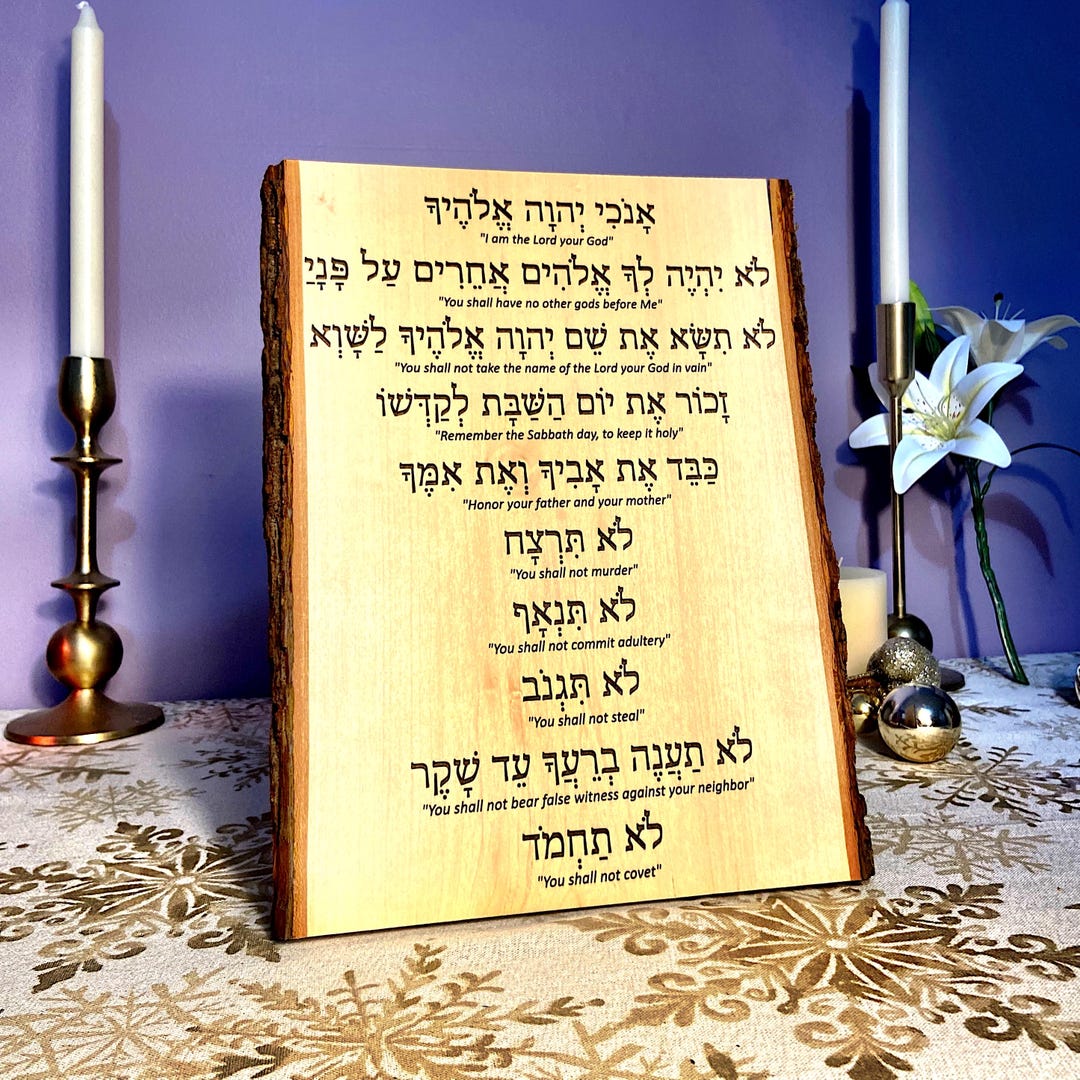 אָנֹכִי יְהוָה אֱלֹהֶיךָ
"I am the Lord your God"
לֹא יִהְיֶה לְךָ אֱלֹהִים אֲחֵרִים עַל פָּנָיַ
"You shall have no other gods before Me"
לֹא תִשָּׂא אֶת שֵׁם יְהוָה אֱלֹהֶיךָ לַשָּׁוְא
"You shall not take the name of the Lord your God in vain"
זָכוֹר אֶת יוֹם הַשַּׁבָּת לְקַדְּשׁוֹ
"Remember the Sabbath day, to keep it holy"
כַּבֵּד אֶת אָבִיךָ וְאֶת אִמֶּךָ
"Honor your father and your mother"
לֹא תִּרְצָח
"You shall not murder"
לֹא תִּנְאָף
"You shall not commit adultery"
לֹא תִּגְנֹב
"You shall not steal"
לֹא תַעֲנֶה בְרֵעֲךָ עֵד שָׁקֶר
"You shall not bear false witness against your neighbor"
לֹא תַחְמֹד
"You shall not covet"